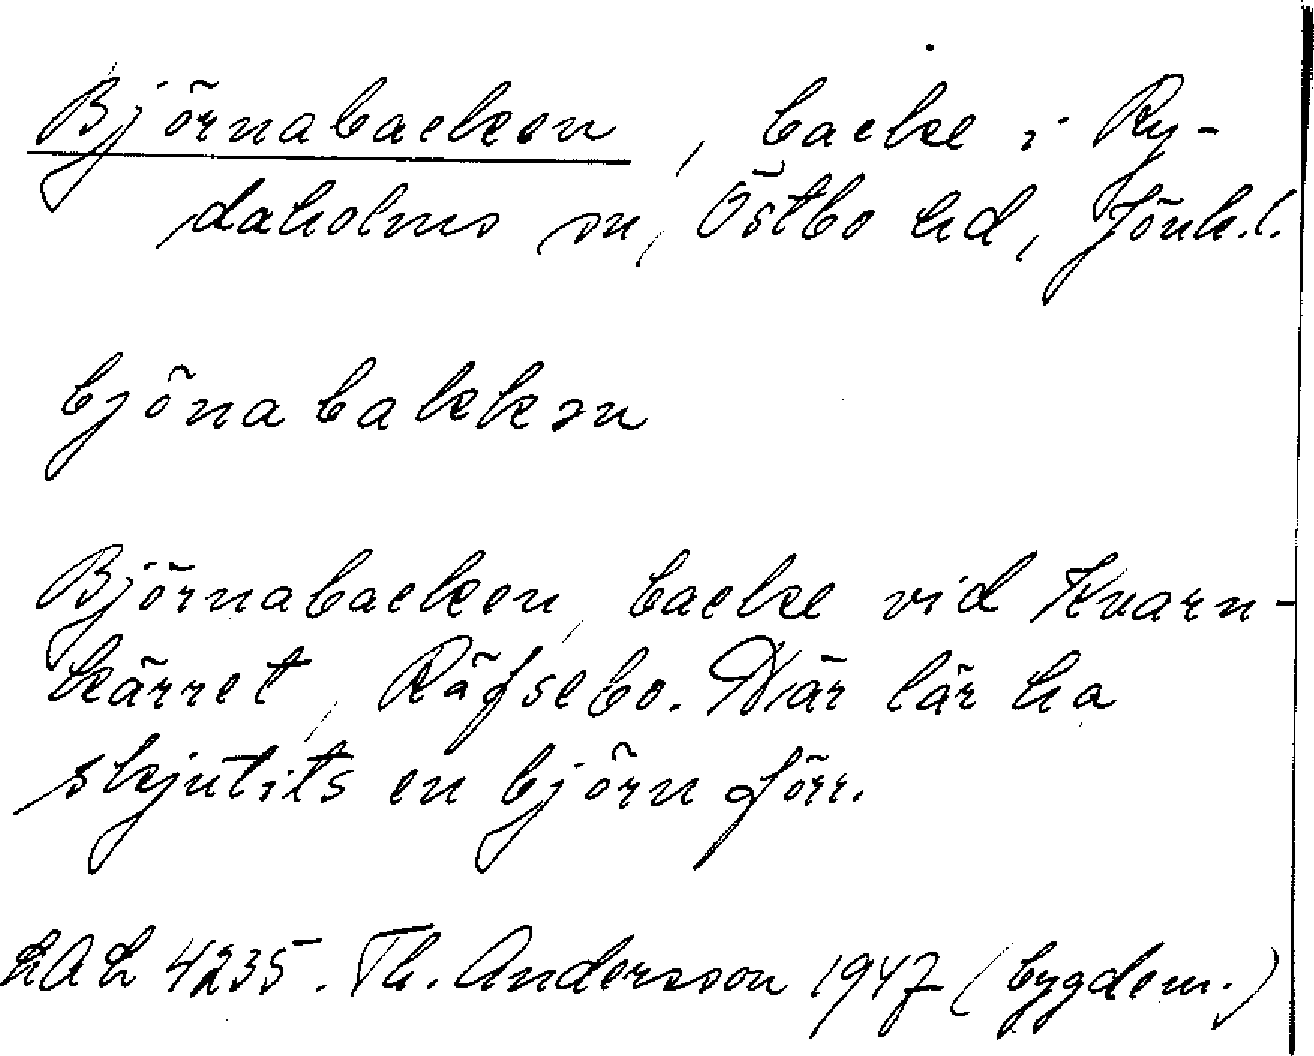 Björnabacken, backe i Ry-
daholms sn, Östbo hd, Jönk.l.
bjönabakken
Björnabacken, backe vid Kvarn-
kärret, Räfsebo. Där lär ha
skjutits en björn förr.
LAL 4235. Th. Andersson 1947 (bygdem.)